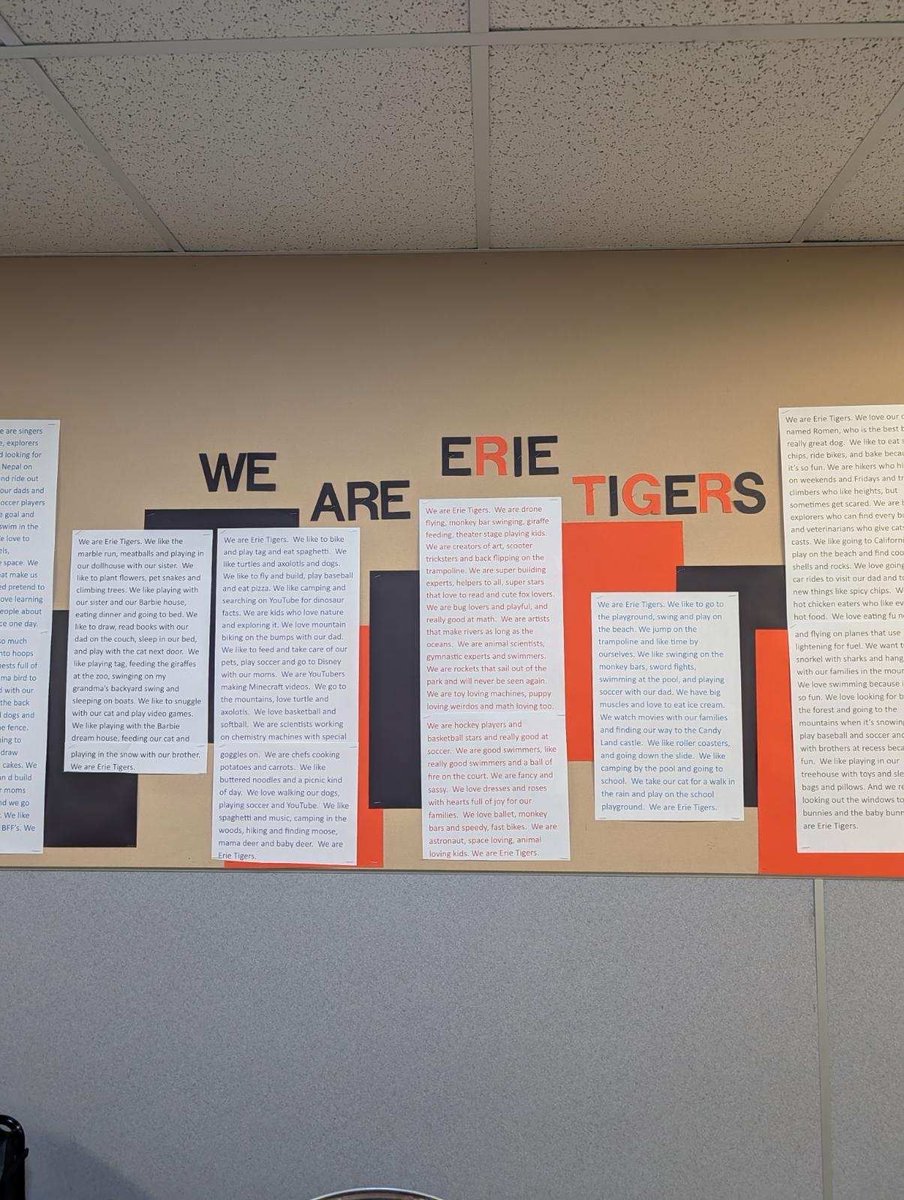 WE
ARE
ERIE
TIGERS
are singers
explorers
d looking for
Nepal on
nd ride out
our dads and
occer players
e goal and
swim in the
e love to
space. We
at make us
ed pretend to
ove learning
eople about
ce one day.
so much
nto hoops
ests full of
ma bird to
d with our
the back
dogs and
e fence.
ing to
draw
cakes. We
n d build
moms
nd we go
We like
BFF's. We
We are Erie Tigers. We like the
marble run, meatballs and playing in
our dollhouse with our sister. We
like to plant flowers, pet snakes and
climbing trees. We like playing with
our sister and our Barbie house,
eating dinner and going to bed. We
like to draw, read books with our
dad on the couch, sleep in our bed,
and play with the cat next door. We
like playing tag, feeding the giraffes
at the zoo, swinging on my
grandma's backyard swing and
sleeping on boats. We like to snuggle
with our cat and play video games.
We like playing with the Barbie
dream house, feeding our cat and
playing in the snow with our brother.
We are Erie Tigers.
We are Erie Tigers. We like to bike
and play tag and eat spaghetti. We
like turtles and axolotls and dogs.
We like to fly and build, play baseball
and eat pizza. We like camping and
searching on YouTube for dinosaur
facts. We are kids who love nature
and exploring it. We love mountain
biking on the bumps with our dad.
We like to feed and take care of our
pets, play soccer and go to Disney
with our moms. We are YouTubers
making Minecraft videos. We go to
the mountains, love turtle and
axolotls. We love basketball and
softball. We are scientists working
on chemistry machines with special
goggles on. We are chefs cooking
potatoes and carrots. We like
buttered noodles and a picnic kind
of day. We love walking our dogs,
playing soccer and YouTube. We like
spaghetti and music, camping in the
woods, hiking and finding moose,
mama deer and baby deer. We are
Erie Tigers.
We are Erie Tigers. We are drone
flying, monkey bar swinging, giraffe
feeding, theater stage playing kids.
We are creators of art, scooter
tricksters and back flipping on the
trampoline. We are super building
experts, helpers to all, super stars
that love to read and cute fox lovers.
We are bug lovers and playful, and
really good at math. We are artists
that make rivers as long as the
oceans. We are animal scientists,
gymnastic experts and swimmers.
We are rockets that sail out of the
park and will never be seen again.
We are toy loving machines, puppy
loving weirdos and math loving too.
We are hockey players and
basketball stars and really good at
soccer. We are good swimmers, like
really good swimmers and a ball of
fire on the court. We are fancy and
sassy. We love dresses and roses
with hearts full of joy for our
families. We love ballet, monkey
bars and speedy, fast bikes. We are
astronaut, space loving, animal
loving kids. We are Erie Tigers.
We are Erie Tigers. We like to go to
the playground, swing and play on
the beach. We jump on the
trampoline and like time by
ourselves. We like swinging on the
monkey bars, sword fights,
swimming at the pool, and playing
soccer with our dad. We have big
muscles and love to eat ice cream.
We watch movies with our families
and finding our way to the Candy
Land castle. We like roller coasters,
and going down the slide. We like
camping by the pool and going to
school. We take our cat for a walk in
the rain and play on the school
playground. We are Erie Tigers.
We are Erie Tigers. We love our
named Romen, who is the best
really great dog. We like to eat
chips, ride bikes, and bake becau
it's so fun. We are hikers who hi
on weekends and Fridays and tr
climbers who like heights, but
sometimes get scared. We are
explorers who can find every b
and veterinarians who give cats
casts. We like going to Californ
play on the beach and find coo
shells and rocks. We love going
car rides to visit our dad and to
new things like spicy chips. W
hot chicken eaters who like ev
hot food. We love eating fu n
and flying on planes that use
lightening for fuel. We want t
snorkel with sharks and hang
with our families in the mou
We love swimming because i
so fun. We love looking for b
the forest and going to the
mountains when it's snowing
play baseball and soccer and
with brothers at recess beca
fun. We like playing in our
treehouse with toys and sle
bags and pillows. And we re
looking out the windows to
bunnies and the baby bunn
are Erie Tigers.